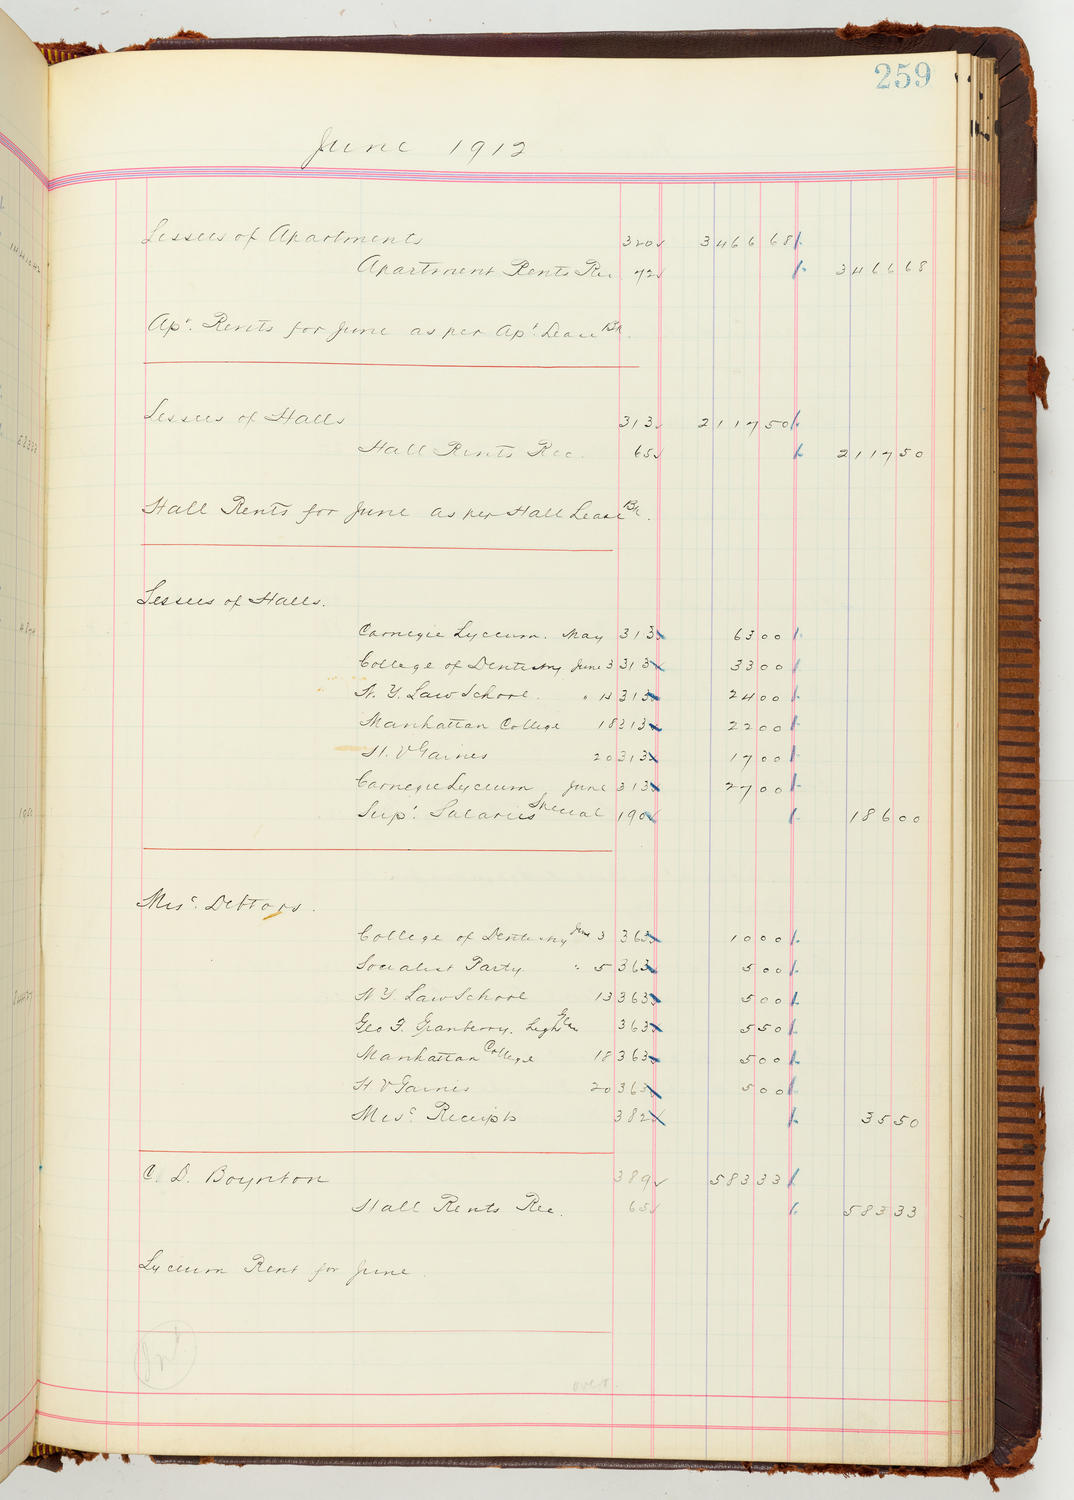 259
June 1912
Lessees of Apartments 320 3466 68
Apartment Rents Rec 72 3466 68
Apt. Rents for June as per Apt. Lease Bk.
Lessees of Halls 313 2117 50
Hall Rents Rec. 65 2117 50
Hall Rents for June as per Hall Lease Bk.
Lessees of Halls.
Carnegie Lyceum. May 313 63 00
College of Dentistry June 3 313 33 00
N. Y. Law School. " 14 313 24 00
Manhattan College 18 313 22 00
H. V Gaines 20 313 17 00
Carnegie Lyceum June 313 27 00
Supt. Salaries Special 190 186 00
Misc. Debtors.
College of Dentistry June 3 363 10 00
Socialist Party " 5 363 5 00
N Y. Law School 13 363 5 00
Geo F. Granberry. Light 363 5 50
Manhattan College 18 363 5 00
H V Gaines 20 363 5 00
Misc. Receipts 382 35 50
C. D. Boynton 389 583 33
Hall Rents Rec. 65 583 33
Lyceum Rent for June
over.